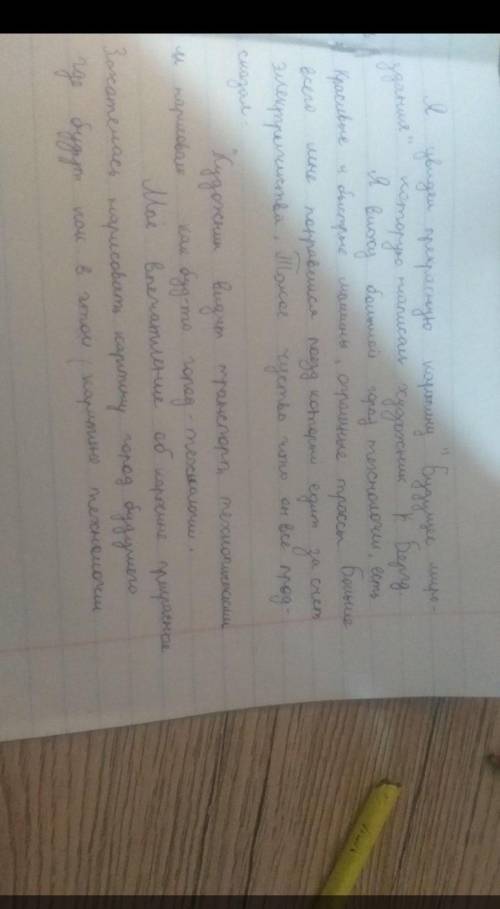 Я увидел прекрасную картину "Будущие миро-
здания" которую написал художник К Берд
Я вижу большой город технологии, есть
красивые и быстрые машины, огромные трассы Больше
всего мне понравился поезд который едит за счет
электричества. Такое чуство что он всё пред-
сказал.
"Художник видит транспорт технологиями
и нарисовал как буд-то город-технологии.
Моё впечатление об картине прекрасное
Захателась нарисовать картину город будущего
где будут как в этой картине технологии